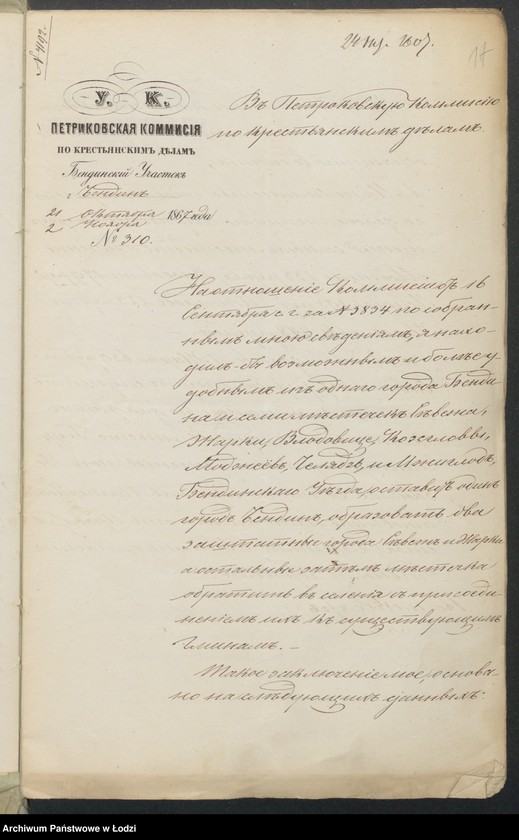 № 4192.
24 1807.
17
У. К.
ПЕТРИКОВСКАЯ КОММИСІЯ
ПО КРЕСТЬЯНСКИМЪ ДѢЛАМЪ
Бендинскій Участокъ
г. Бендинъ
21 Октября 1867 года
2 Ноября
№ 310.
Въ Петроковскую Коммисію
по крестьянскимъ дѣламъ.
На отношеніе Коммисіи отъ 16
Сентября с. г. за № 3834 по собран-
нымъ мною свѣденіямъ, я нахо-
дилъ-бы возможнымъ и болѣе у
добнымъ изъ однаго города Бенди
на и семи мѣстечекъ Сѣвежа,
Жарки, Влодовице, Козегловы,
Моджеёвъ, Челядзь, и Мжиглодъ,
Бендинскаго Уѣзда, оставить одинъ
городъ Бендинъ, образовать два
заштатные города Сѣвежъ и Жарки
а остальные затѣмъ мѣстечка
обратить въ селенія съ присоеди
неніемъ ихъ къ существующимъ
Гминамъ. —
Такое заключеніе мое, основа-
но на слѣдующихъ данныхъ:
Archiwum Państwowe w Łodzi